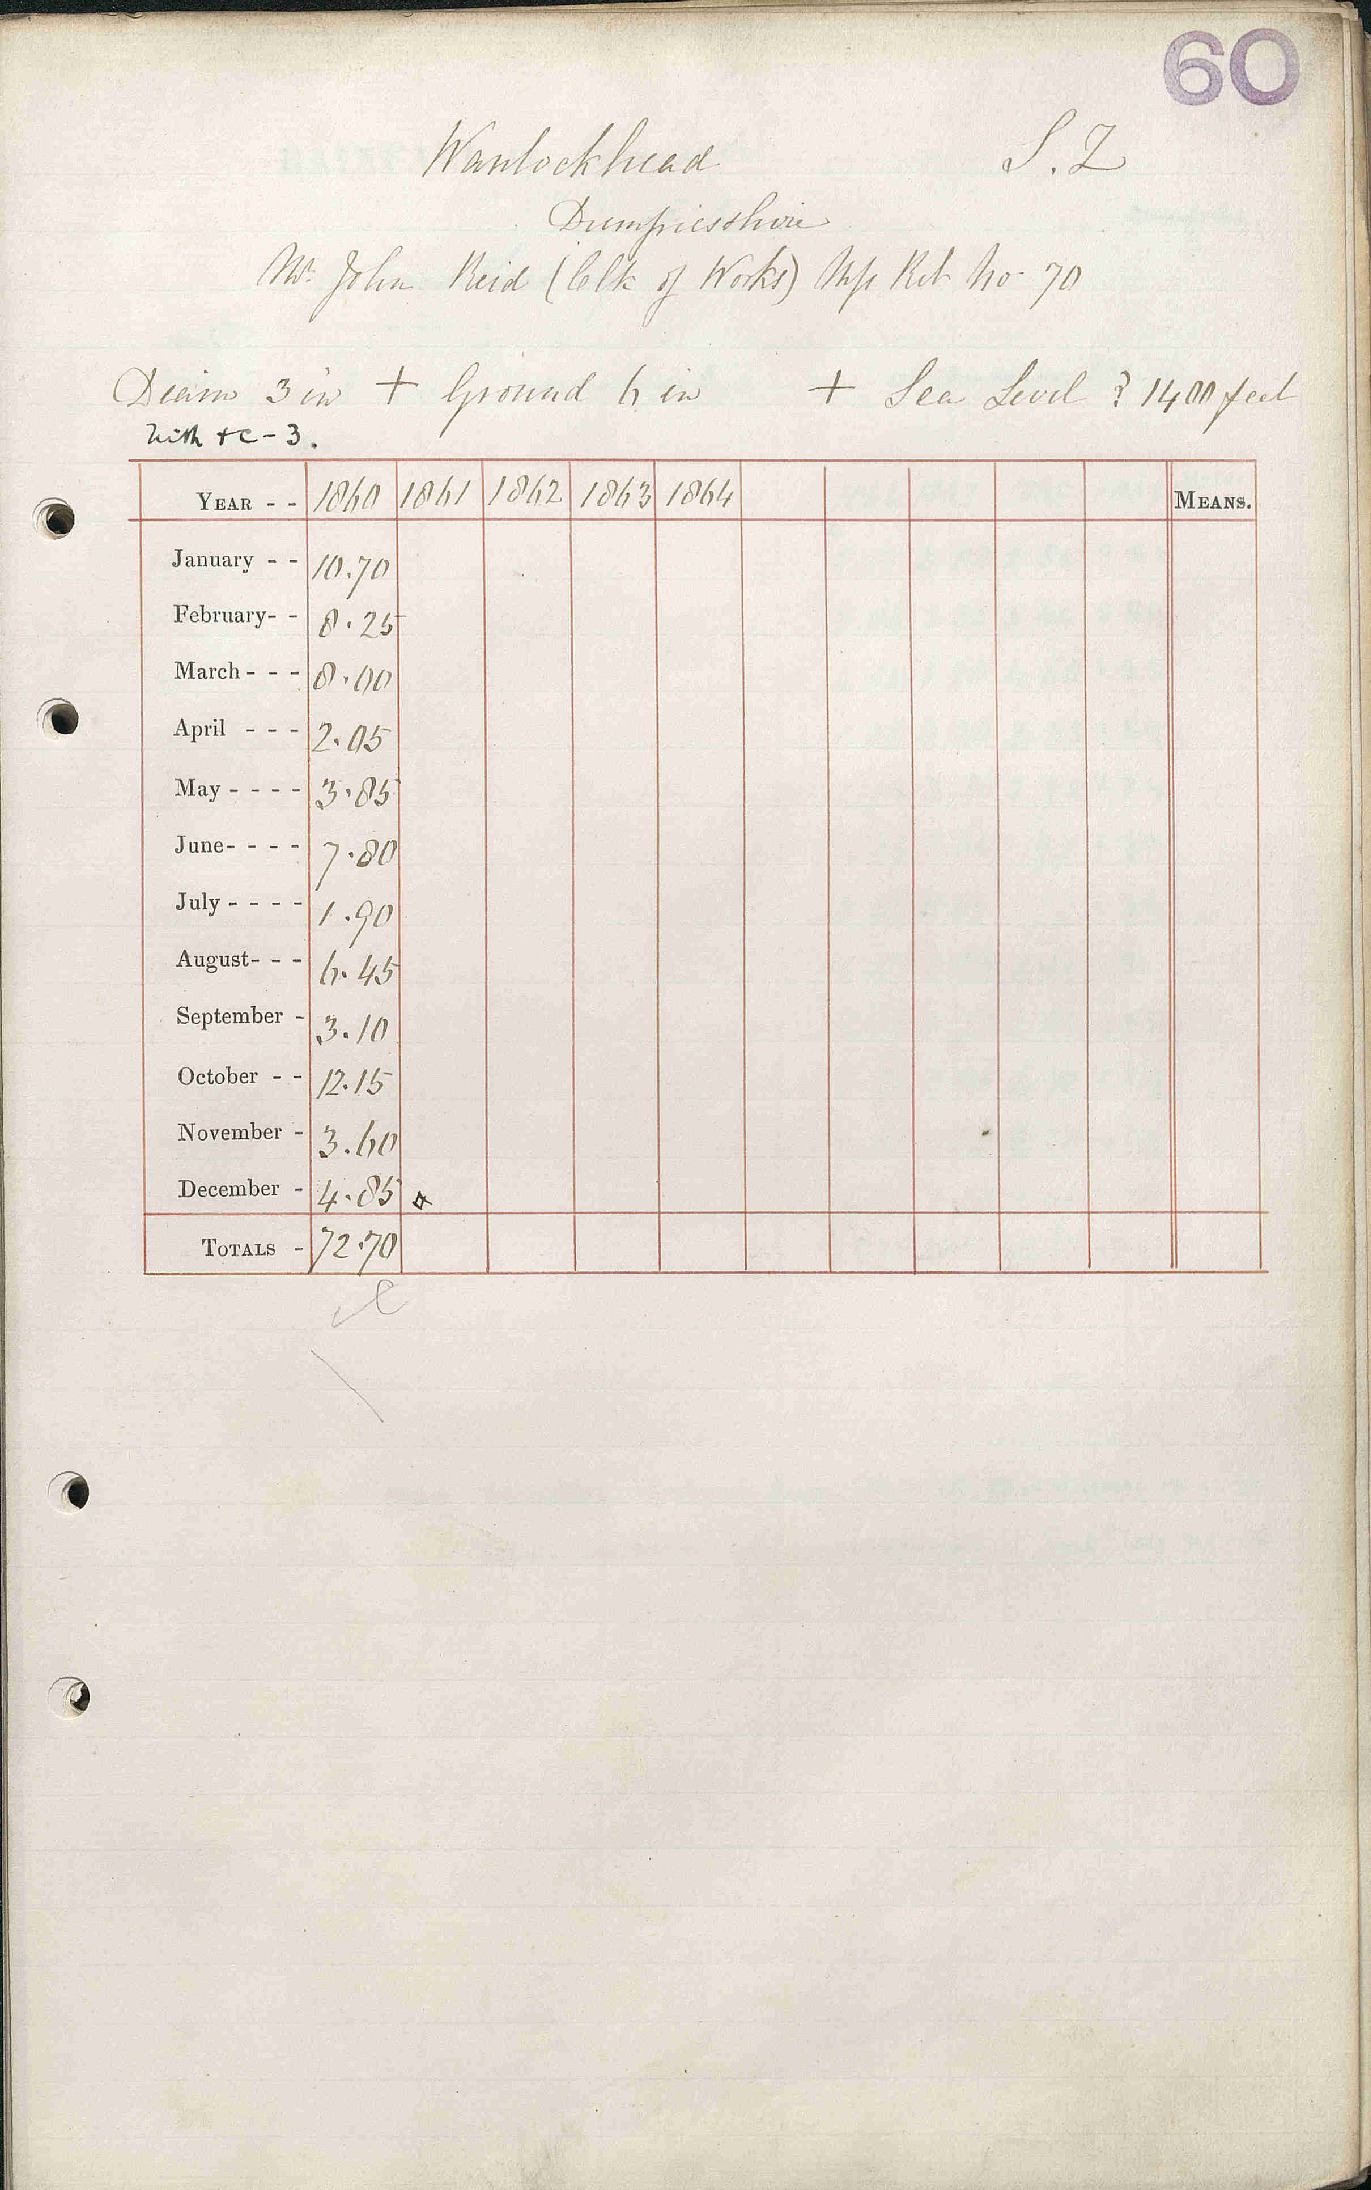 60
Wanlockhead S. Z
Dumfriesshire
Mr. John Reid (Clk of Works) Mss Ret No 70
Diam 3 in + Ground 6 in + Sea Level ? 1400 feet
YEAR - - 1860 1861 1862 1863 1864 MEANS.
January - - 10.70
February - - 8.25
March - - - 8.00
April - - - 2.05
May - - - - 3.85
June - - - - 7.80
July - - - - 1.90
August - - - 6.45
September - 3.10
October - - 12.15
November - 3.60
December - 4.85
TOTALS - 72.70